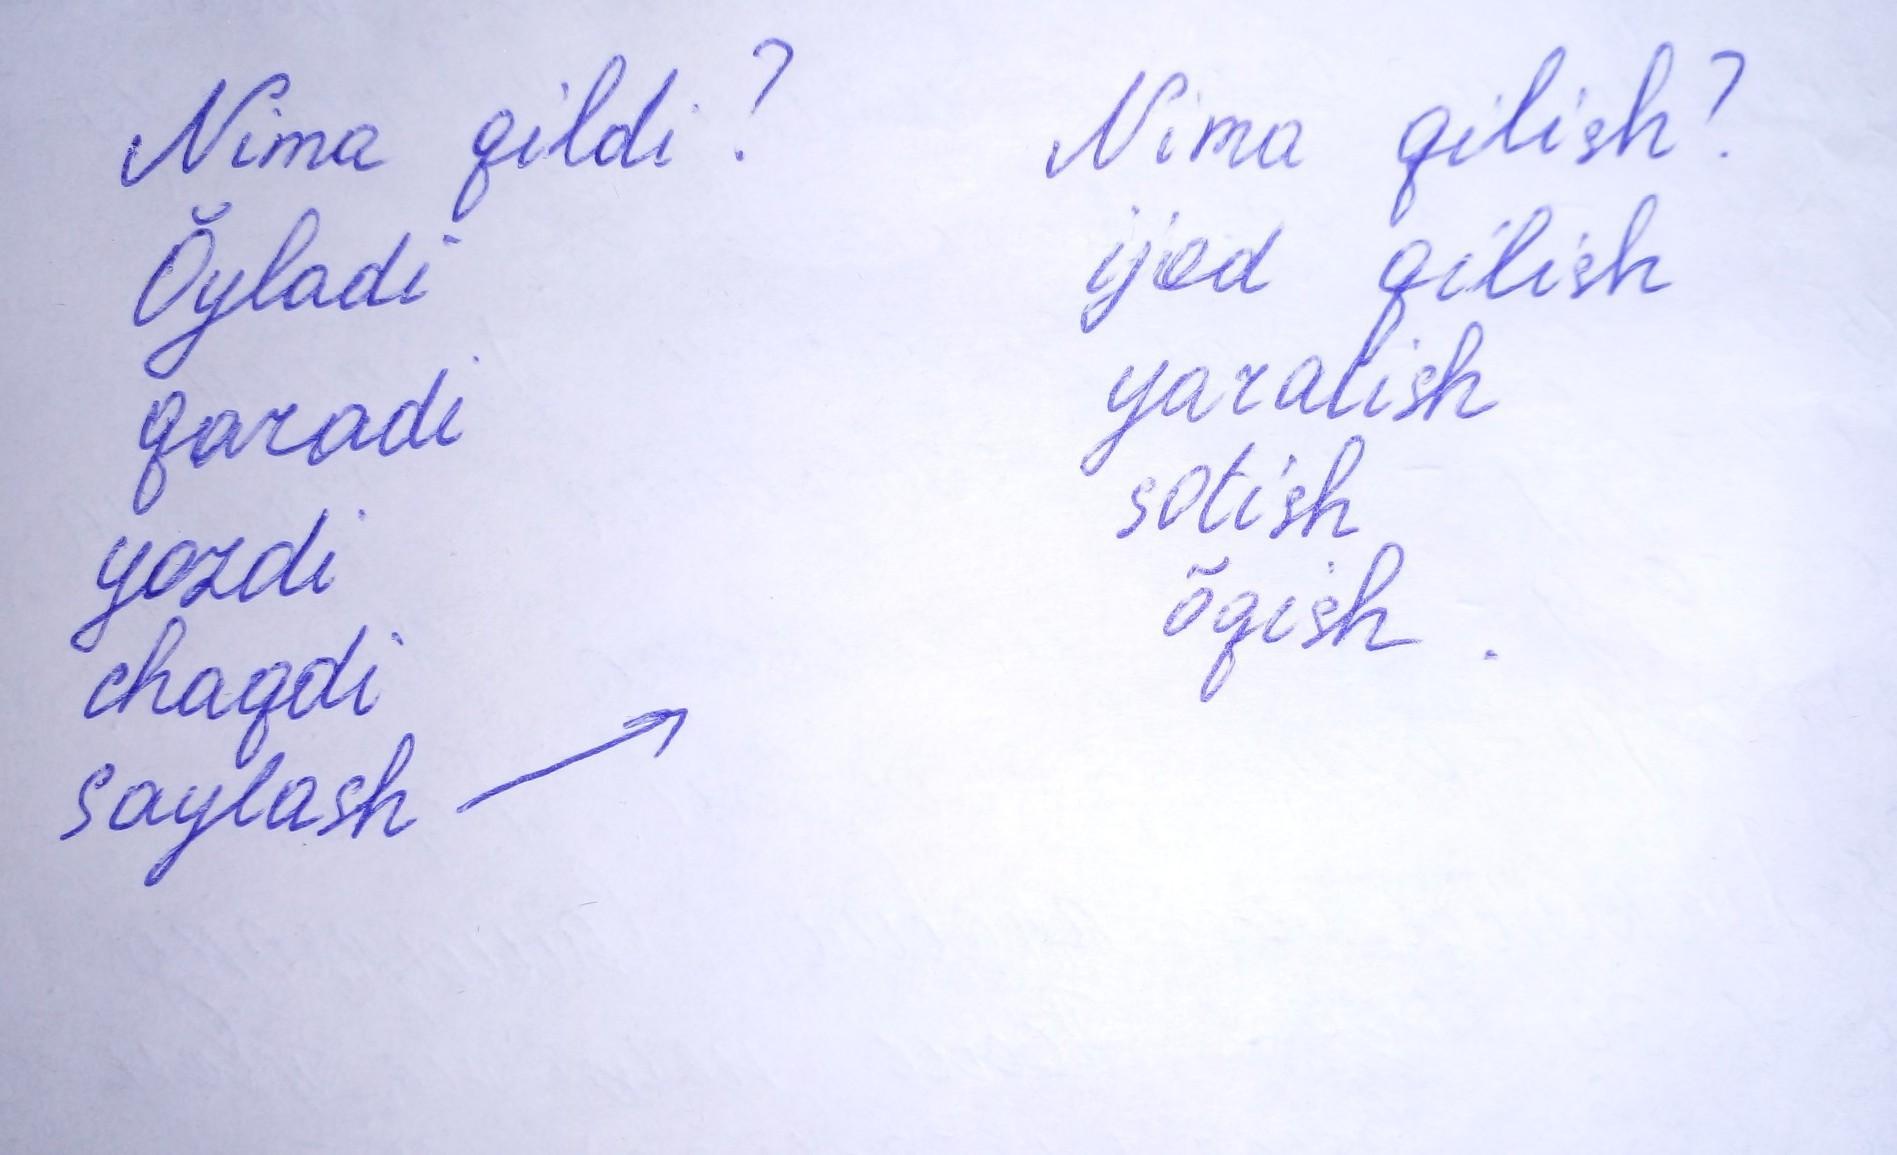 Nima qildi?
Ŏyladi
qaradi
yozdi
chaqdi
saylash →
Nima qilish?
ijod qilish
yaralish
sotish
õqish.